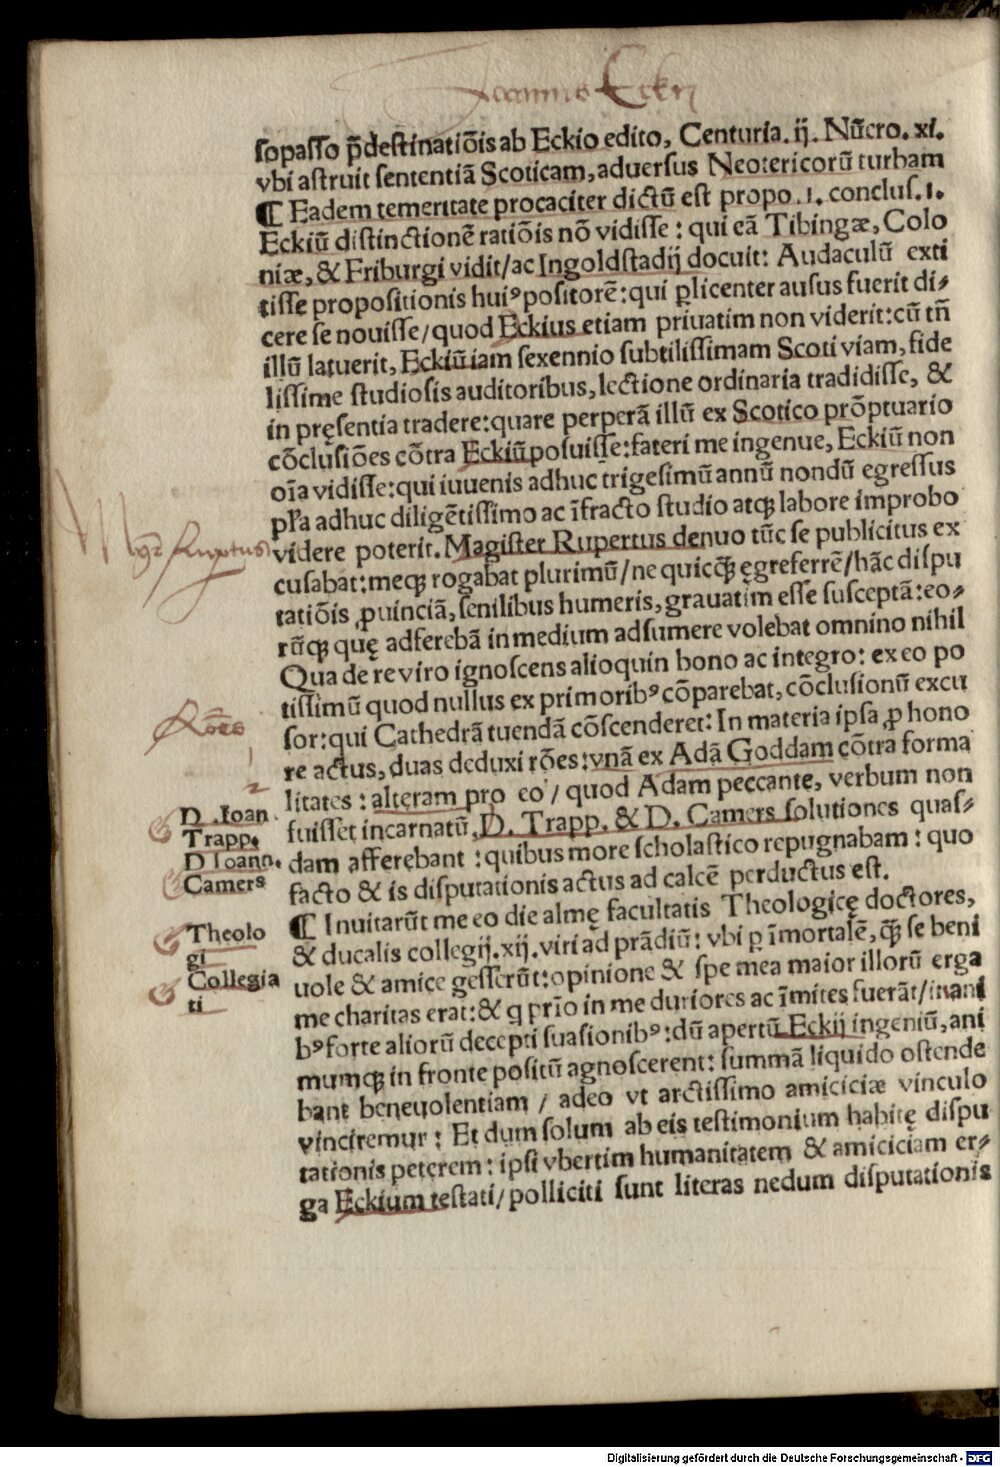 Joannis Eckij
sopasso p̄destinatiōis ab Eckio edito, Centuria. ij. Nūero. xi.
vbi astruit sententiā Scoticam, aduersus Neotericorū turbam
¶ Eadem temeritate procaciter dictū est propo. 1. conclus. 1.
Eckiū distinctionē ratiōis nō vidisse : qui eā Tibingæ, Colo
niæ, & Friburgi vidit/ac Ingoldstadij docuit: Audaculū exti
tisse propositionis huiꝰ positorē: qui ꝑlicenter ausus fuerit di⸗
cere se nouisse/quod Eckius etiam priuatim non viderit: cū tñ
illū latuerit, Eckiū iam sexennio subtilissimam Scoti viam, fide
lissime studiosis auditoribus, lectione ordinaria tradidisse, &
in pręsentia tradere: quare perperā illū ex Scotico prōptuario
cōclusiōes cōtra Eckiū posuisse: fateri me ingenue, Eckiū non
oīa vidisse: qui iuuenis adhuc trigesimū annū nondū egressus
pl̄a adhuc diligētissimo ac īfracto studio atqꝫ labore improbo
videre poterit. Magister Rupertus denuo tūc se publicitus ex
cusabat: meqꝫ rogabat plurimū/ne quicq̄ꝫ ęgreferrē/hāc dispu
tatiōis ꝓuinciā, senilibus humeris, grauatim esse susceptā: eo⸗
rūqꝫ quę adferebā in medium adsumere volebat omnino nihil
Qua de re viro ignoscens alioquin bono ac integro: ex eo po
tissimū quod nullus ex primoribꝰ cōparebat, cōclusionū excu
sor: qui Cathedrā tuendā cōscenderet: In materia ipsa ꝓ hono
re actus, duas deduxi rōes: vnā ex Adā Goddam cōtra forma
litates : alteram pro eo / quod Adam peccante, verbum non
fuisset incarnatū, D. Trapp. & D. Camers solutiones quas⸗
dam afferebant : quibus more scholastico repugnabam : quo
facto & is disputationis actus ad calcē perductus est.
¶ Inuitarūt me eo die almę facultatis Theologicę doctores,
& ducalis collegij. xij. viri ad prādiū: vbi ꝑ īmortalē, q̄ꝫ se beni
uole & amice gesserūt: opinione & spe mea maior illorū erga
me charitas erat: & q prīo in me duriores ac īmites fuerāt/inani
bꝰ forte aliorū decepti suasionibꝰ: dū apertū Eckij ingeniū, ani
mumqꝫ in fronte positū agnoscerent: summā liquido ostende
bant beneuolentiam / adeo vt arctissimo amiciciæ vinculo
vinciremur : Et dum solum ab eis testimonium habitę dispu
tationis peterem : ipsi vbertim humanitatem & amiciciam er⸗
ga Eckium testati/polliciti sunt literas nedum disputationis
Mgr̄ Ruptus
Rōes
1
2
D. Ioan.
Trapp.
D Ioann.
Camers
Theolo
gi
Collegia
ti
Digitalisierung gefördert durch die Deutsche Forschungsgemeinschaft - DFG